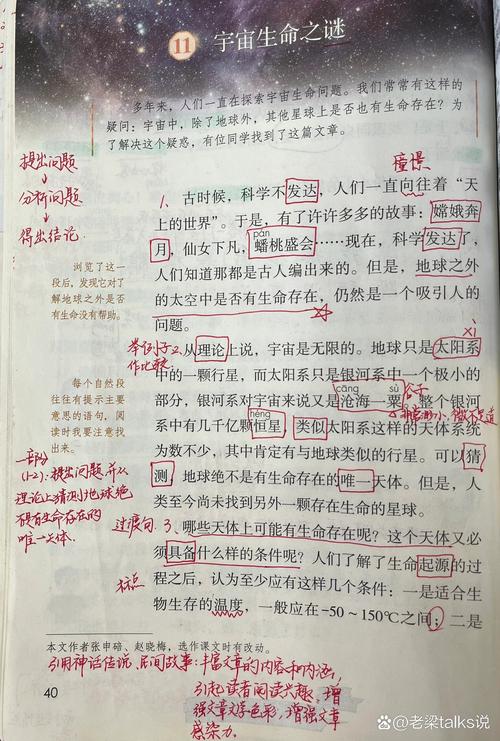 11 宇宙生命之谜
多年来，人们一直在探索宇宙生命问题。我们常常有这样的
疑问：宇宙中，除了地球外，其他星球上是否也有生命存在？为
了解决这个疑惑，有位同学找到了这篇文章。
提出问题
↓
分析问题
↓
得出结论
浏览了这一
段后，发现它对了
解地球之外是否
有生命没有帮助。
每个自然段
往往有提示主要
意思的语句，阅
读时我要注意找
出来。
一部分
(1-2)：提出问题，并从
理论上猜测地球绝
不是有生命存在的
唯一天体.
憧憬
1、古时候，科学不发达，人们一直向往着“天
上的世界”。于是，有了许许多多的故事：嫦娥奔
pán
月，仙女下凡，蟠桃盛会……现在，科学发达了，
人们知道那都是古人编出来的。但是，地球之外
的太空中是否有生命存在，仍然是一个吸引人的
问题。
xì
举例子
作比较
2、从理论上说，宇宙是无限的。地球只是太阳系
中的一颗行星，而太阳系只是银河系中一个极小的
cāng sù 谷子
部分，银河系对宇宙来说又是沧海一粟。整个银河
非常渺小，微不足道
héng
系中有几千亿颗恒星，类似太阳系这样的天体系统
为数不少，其中肯定有与地球类似的行星。可以猜
测，地球绝不是有生命存在的唯一天体。但是，人
类至今尚未找到另外一颗存在生命的星球。
过渡句
3、哪些天体上可能有生命存在呢？这个天体又必
须具备什么样的条件呢？人们了解了生命起源的过
程之后，认为至少应有这样几个条件：一是适合生
物生存的温度，一般应在-50～150℃之间；二是
本文作者张申碚、赵晓梅，选作课文时有改动。
引用神话传说、民间故事：丰富文章的内容和内涵；
引起读者阅读兴趣，增
强文章文学色彩，增强文章
感染力.
40
@老梁talks说